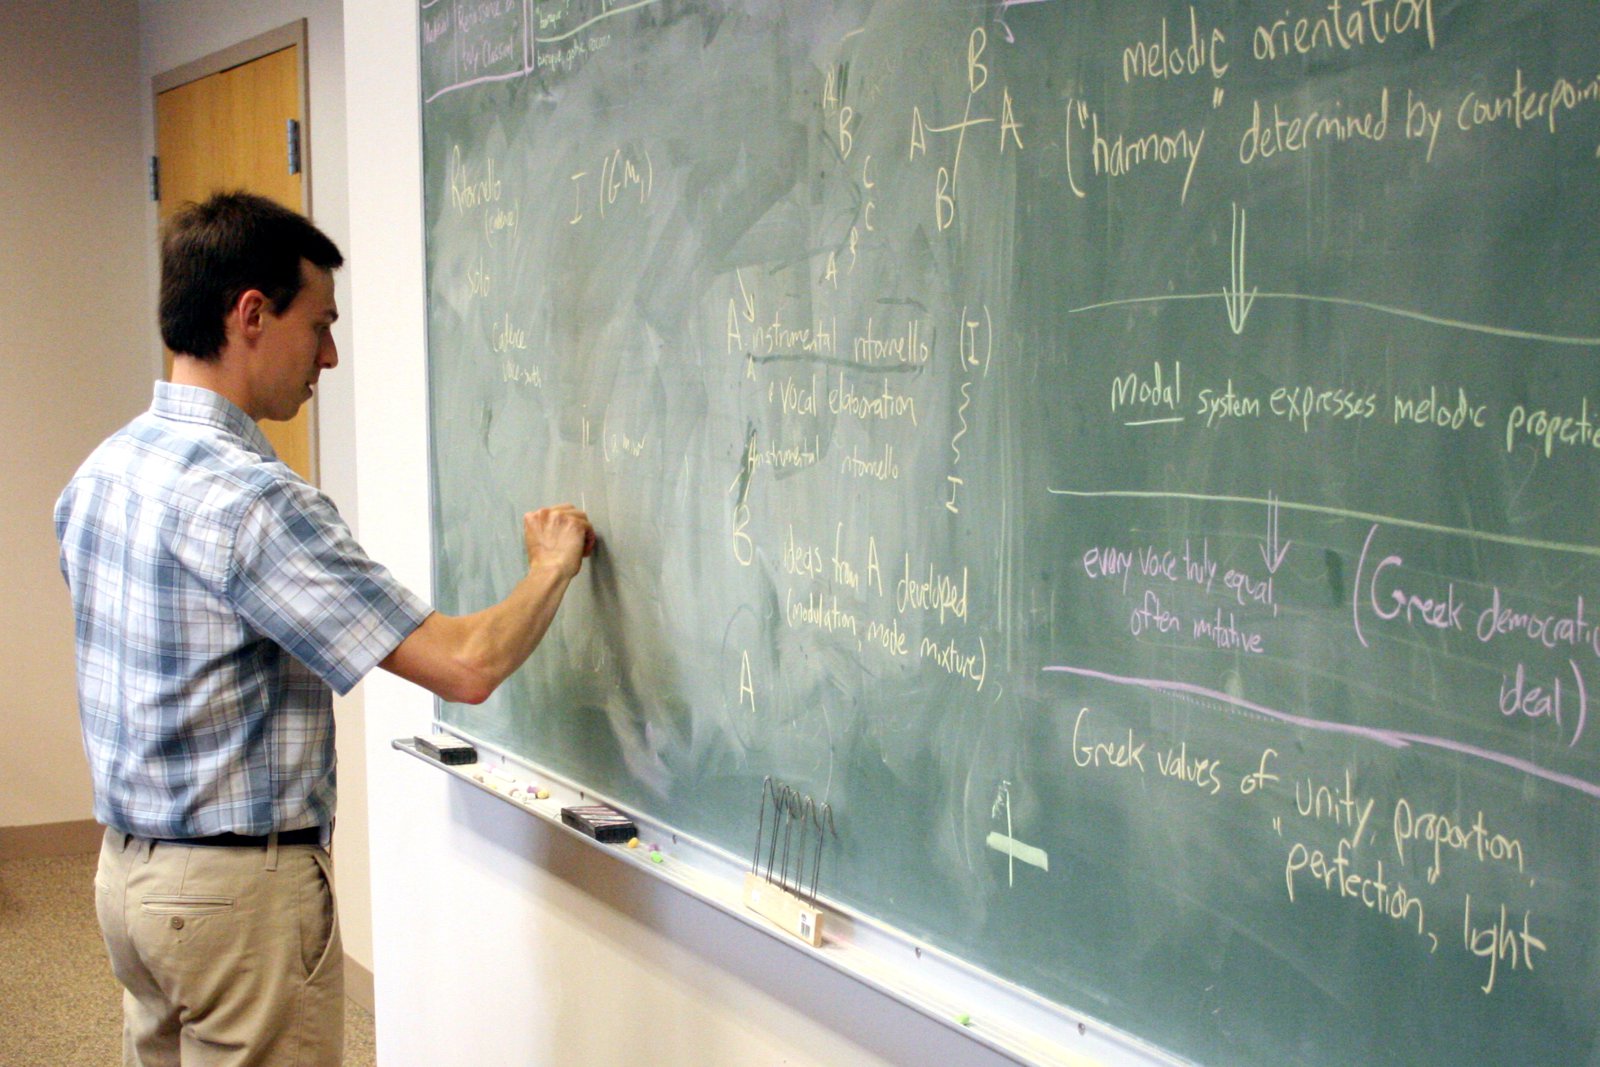 Medieval
Renaissance as
truly Classical
"baroque"?
baroque, gothic, rococo
Ritornello
(cadence)
solo
cadence
I (GM,)
ii (a minor
A
B
C
C
B
A
B
A A
B
A instrumental ritornello (I)
A
vocal elaboration
Instrumental ritornello I
B ideas from A developed
(modulation, mode mixture),
A
melodic orientation
("harmony" determined by counterpoint
Modal system expresses melodic propertie
every voice truly equal,
often imitative
(Greek democratic
ideal)
Greek values of unity, proportion,
"perfection", light